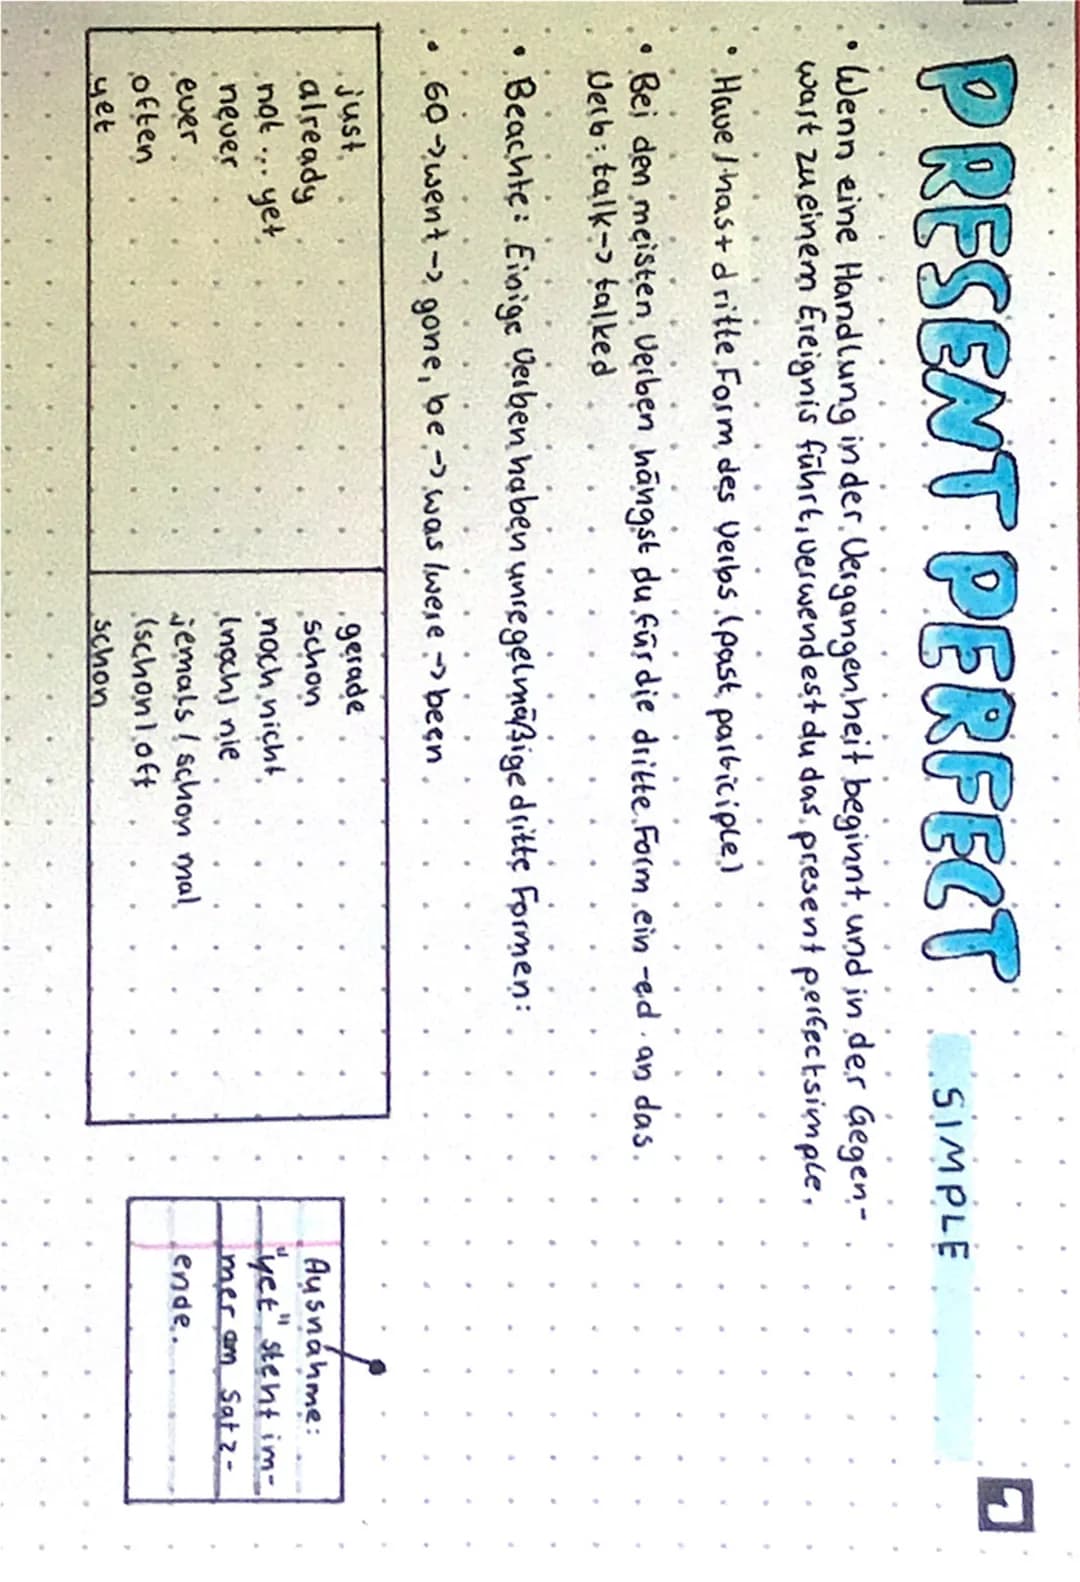 PRESENT PERFECT SIMPLE
• Wenn eine Handlung in der Vergangenheit beginnt und in der Gegen-
wart zu einem Ereignis führt, verwendest du das present perfect simple.
• Have / has + dritte Form des Verbs (past participle)
• Bei den meisten Verben hängst du für die dritte Form ein -ed an das
Verb: talk -> talked
• Beachte: Einige Verben haben unregelmäßige dritte Formen:
• Go -> went -> gone, be -> was / were -> been
just gerade
already schon
not ... yet noch nicht
never (noch) nie
ever jemals / schon mal
often (schon) oft
yet schon
Ausnahme:
"yet" steht im-
mer am Satz-
ende.